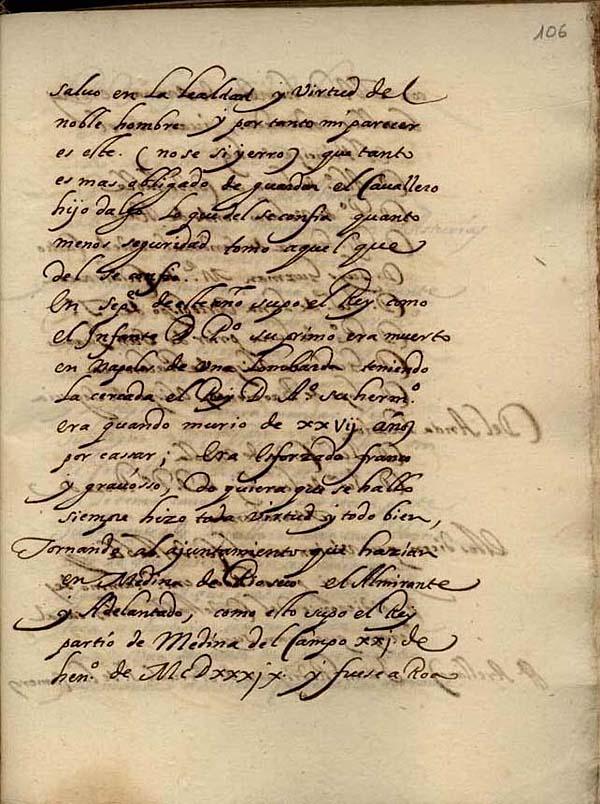 106
salvo en la lealdad y virtud del
noble hombre y por tanto mi parecer
es este. (no se si yerro) que tant
es mas obligado de guardar el Cavallero
hijo dalgo lo que del se confia quanto
menos seguridad tomo aquel que
del se confia.
En Sepe. deste año supo el Rey como
el Infante D. Po. su primo era muerto
en Napoles de una Lombarda teniendo
la cercada el Rey D. Ao. su hermo.
era quando murio de xxvij años
por cassar; Era Esforzado franco
y gracioso, Do quiera que se hallo
siempre hizo toda virtud y todo bien,
Tornando al ajuntamiento que hazian
en Medina de Rioseco el Almirante
y Adelantado, como esto supo el Rey
partio de Medina del Campo xxj. de
heno. de McDxxxjx. y fuese a Roa